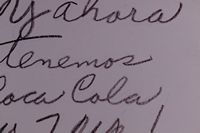 y ahora
tenemos
Coca Cola,